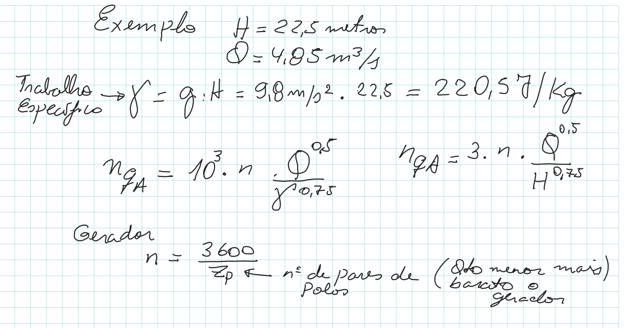 Exemplo H = 22,5 metros
Q = 4,85 m³/s
Trabalho Específico → Y = g . H = 9,8 m/s² . 22,5 = 220,5 J/kg
nqA = 10³ . n . Q^0,5 / Y^0,75 nqA = 3 . n . Q^0,5 / H^0,75
Gerador
n = 3600 / Zp ← nº de pares de polos (Qto menor mais barato o gerador)